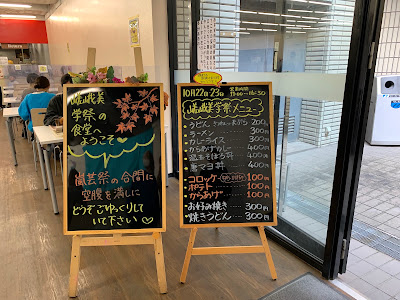 嵯峨美
学祭の
食堂へ
ようこそ♡
嵐芸祭の合間に
空腹を満しに
どうぞごゆっくりして
いて下さい♡
10月22、23日
営業時間
嵯峨美学祭メニュー
うどん
200円
ラーメン
300円
カレーライス
300円
からあげ丼
400円
400円
400円
コロッケ
100円
ポテト
100円
からあげ
100円
お好み焼き
300円
焼きうどん
300円